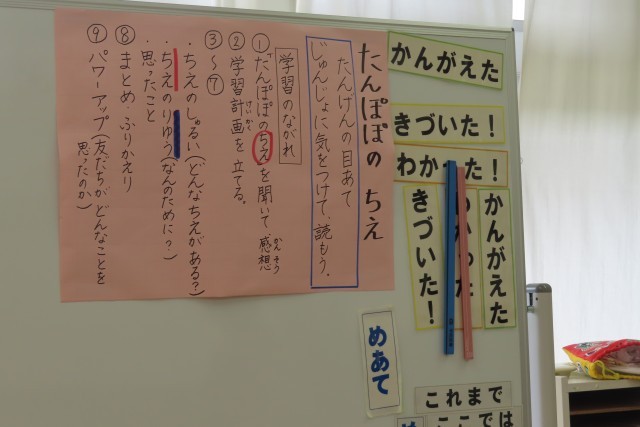 たんぽぽの ちえ
たんけんの目あて
じゅんじょに気をつけて、読もう。
学習のながれ
①「たんぽぽのちえ」を聞いて、感想
かんそう
②学習計画を立てる。
けいかく
③〜⑦
・ちえのしゅるい(どんなちえがある?)
・ちえのりゆう(なんのために?)
・思ったこと
⑧まとめ・ふりかえり
⑨パワーアップ(友だちが どんなことを
思ったのか)
かんがえた
きづいた!
わかった!
かんがえた
きづいた!
めあて
これまで
ここでは